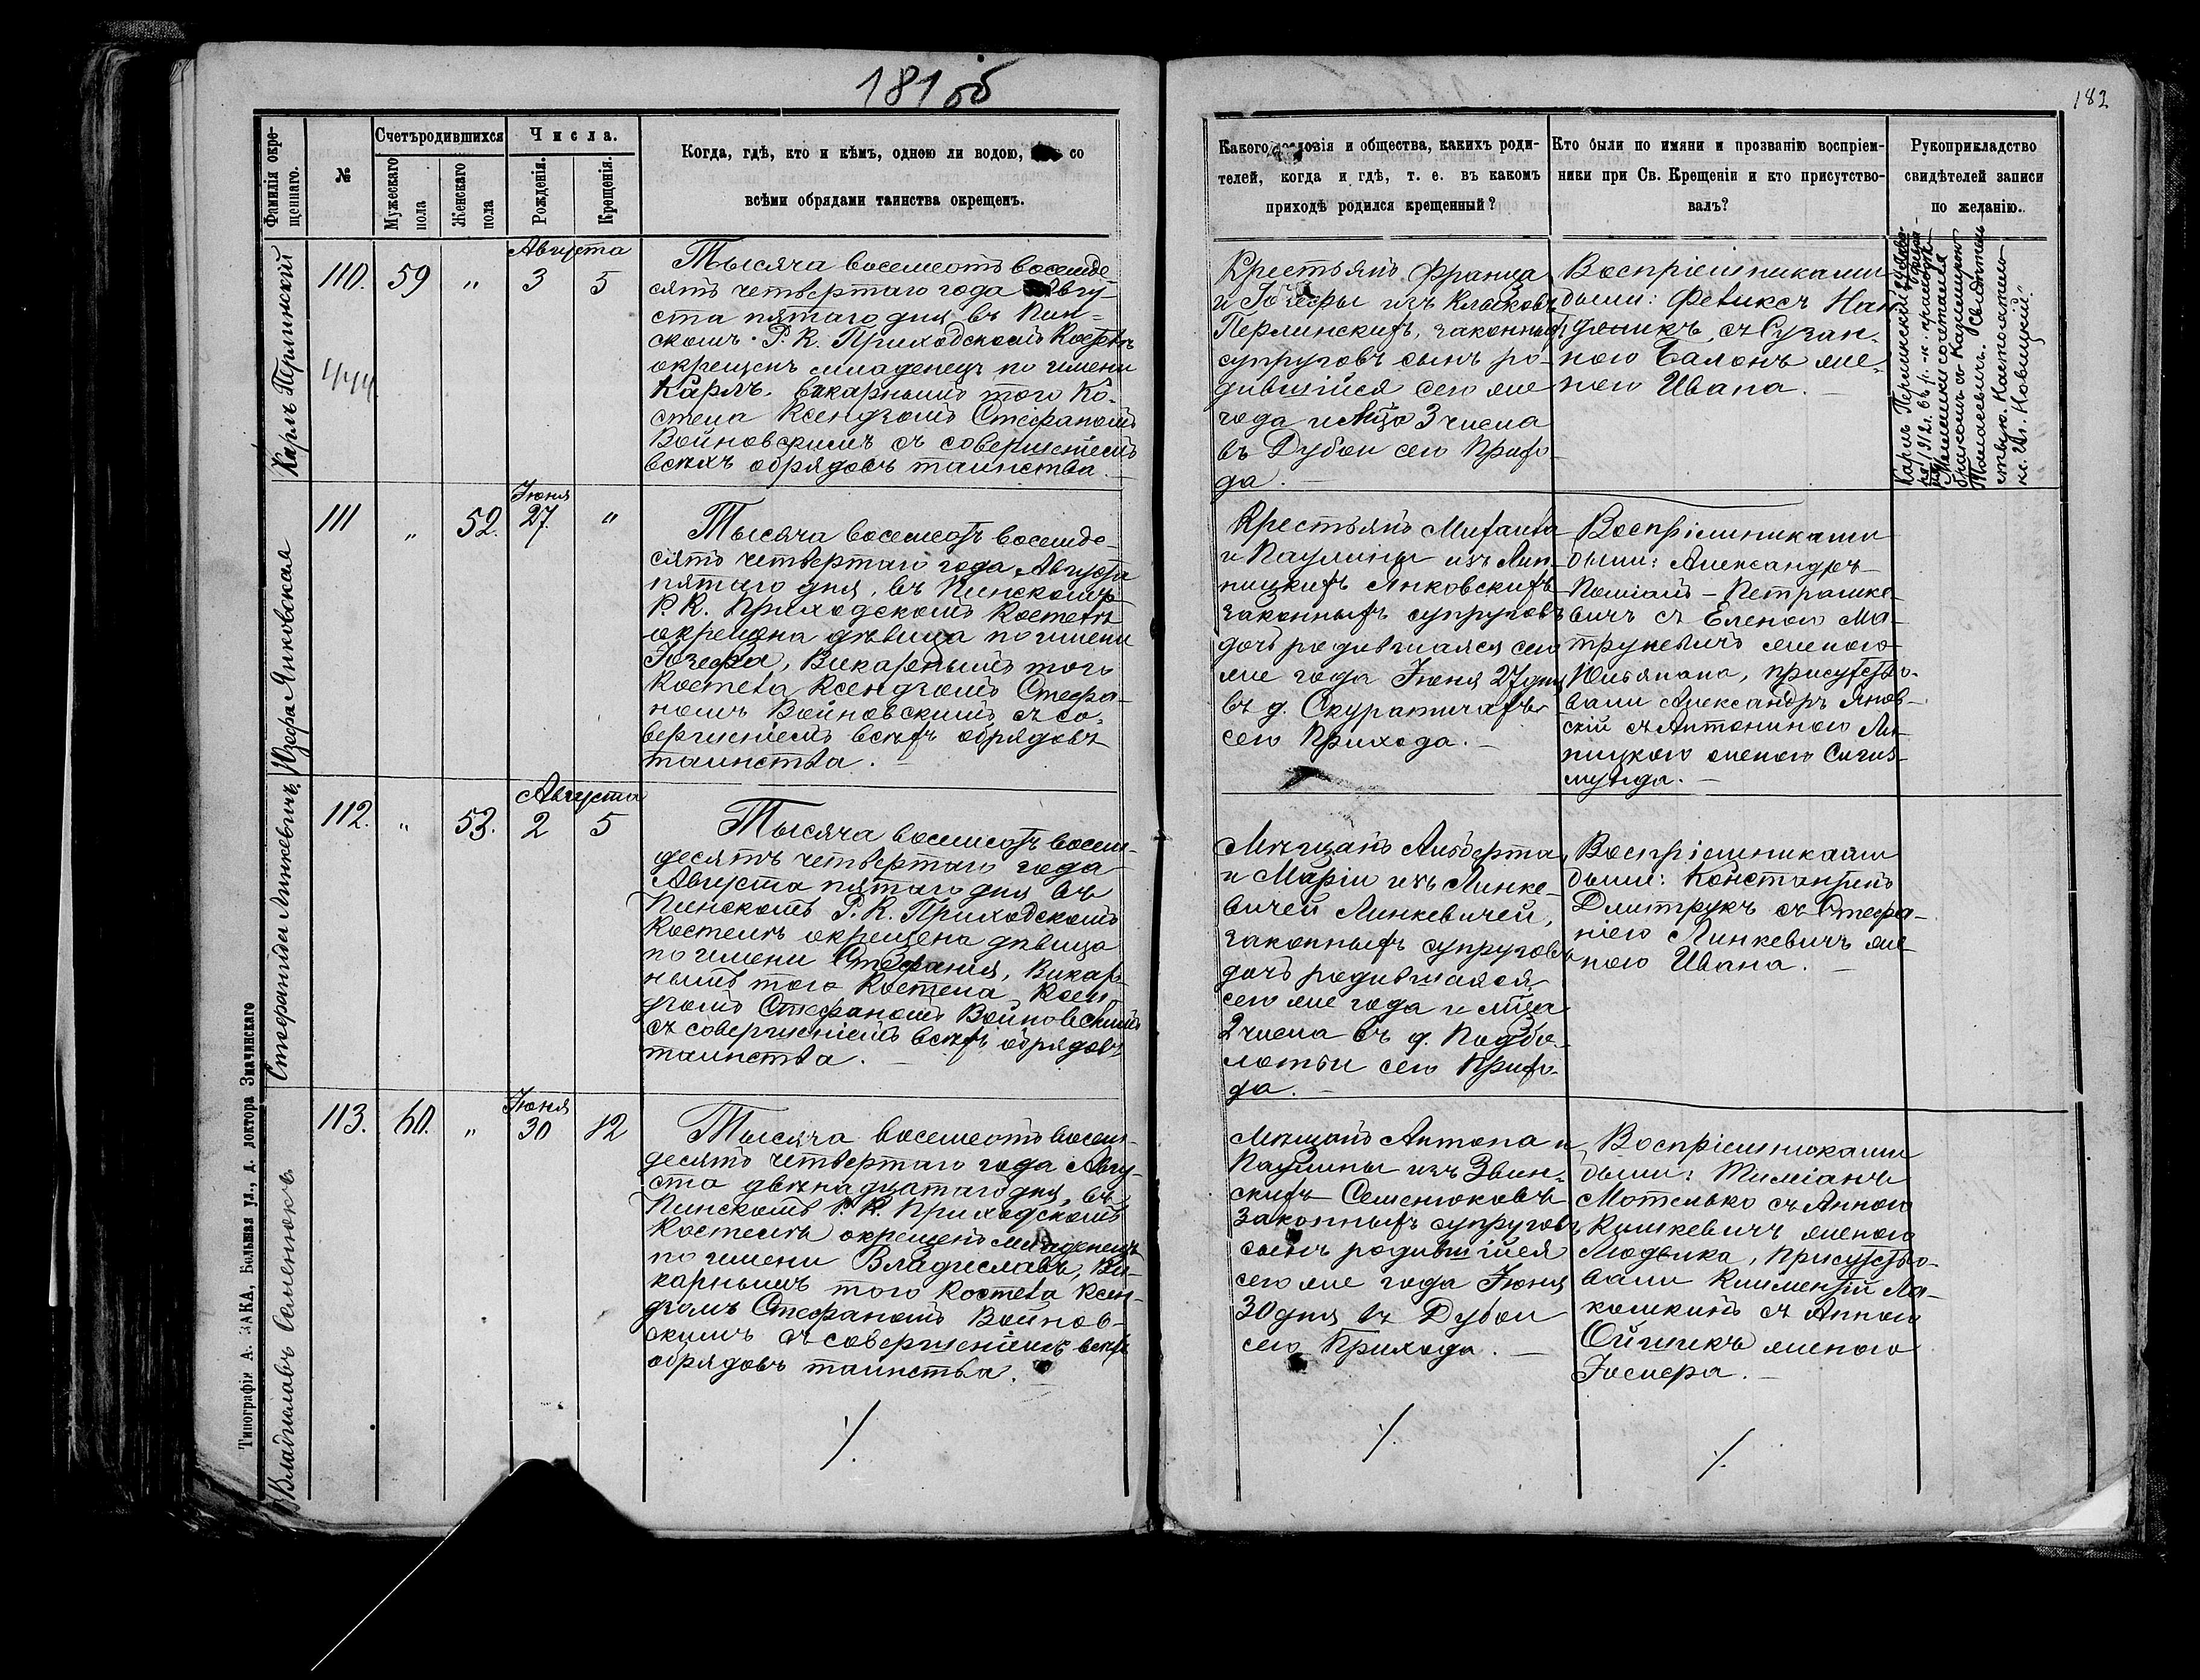 181 об
182
Фамилія окре-
щеннаго.
№
Счетъ родившихся
Мужескаго
пола
Женскаго
пола
Числа.
Рожденія.
Крещенія.
Когда, гдѣ, кто и кѣмъ, одною ли водою, со
всѣми обрядами таинства окрещенъ.
Какого сословія и общества, какихъ роди-
телей, когда и гдѣ, т. е. въ какомъ
приходѣ родился крещенный?
Кто были по имяни и прозванію воспріем-
ники при Св. Крещеніи и кто присутство-
валъ?
Рукоприкладство
свидѣтелей записи
по желанію.
Карлъ Перлинскій
110. 59 „
Августа
3 5
Тысяча восемсотъ восемде
сятъ четвертаго года Авгу-
ста пятаго дня въ Пин-
скомъ Р. К. Приходскомъ Костелѣ
окрещенъ младенецъ по имени
Карлъ. Викарнымъ того Ко-
стела Ксендзомъ Стефаномъ
Войновскимъ съ совершеніемъ
всѣхъ обрядовъ таинства.
Крестьянъ Франца
и Іозефы изъ
Перлинскихъ, законныхъ
супруговъ сынъ ро-
дившійся сего же
года и мѣца 3 числа
въ Дубои сего Прихо-
да.
Воспріемниками
были: Феликсъ
съ Сузан-
ною Балонъ же-
ною Ивана.
Карлъ Перлинскій
1912 г. въ р.-к.
бракомъ съ
кс. Новицкій.
Юзефа Янковская
111 „ 52.
Іюня
27. „
Тысяча восемсотъ восемде-
сятъ четвертаго года Августа
пятаго дня, въ Пинскомъ
Р. К. Приходскомъ Костелѣ
окрещена дѣвица по имени
Юзефа, Викарнымъ того
Костела Ксендзомъ Стефа-
номъ Войновскимъ съ со-
вершеніемъ всѣхъ обрядовъ
таинства.
Крестьянъ Михаила
и Паулины изъ Лип-
ницкихъ Янковскихъ
законныхъ супруговъ
дочь родившаяся сего
же года Іюня 27 дня
въ д. Скуратичахъ
сего Прихода.
Воспріемниками
были: Александръ
Петрашке-
вичъ съ Еленою Ма-
трунчевичъ женою
Юльяна, присутство-
вали Александръ Янов-
скій съ Антониною Ли-
пицкою женою Сигиз-
мунда.
Стефанида Линкевичъ.
112. „ 53.
Августа
2 5
Тысяча восемсотъ восем-
десятъ четвертаго года
Августа пятаго дня въ
Пинскомъ Р. К. Приходскомъ
Костелѣ окрещена дѣвица
по имени Стефанія, Викар-
нымъ того Костела Ксен-
дзомъ Стефаномъ Войновскимъ
съ совершеніемъ всѣхъ обрядовъ
таинства.
Мѣщанъ Альберта
и Маріи изъ Линке-
вичей Линкевичей,
законныхъ супруговъ
дочь родившаяся
сего же года и мѣца
2 числа въ д. Подбо-
лотьи сего Прихо-
да.
Воспріемниками
были: Константинъ
Дмитрукъ съ Стефа-
ніею Линкевичъ же-
ною Ивана.
Владиславъ Семенюкъ
113. 60. „
Іюня
30 12
Тысяча восемсотъ восем-
десятъ четвертаго года Авгу-
ста двѣнадцатаго дня, въ
Пинскомъ Р. К. Приходскомъ
Костелѣ окрещенъ младенецъ
по имени Владиславъ, Ви-
карнымъ того Костела Ксен-
дзомъ Стефаномъ Войнов-
скимъ съ совершеніемъ всѣхъ
обрядовъ таинства.
Мѣщанъ Антона и
Паулины изъ Звин-
скихъ Семенюковъ
Законныхъ супруговъ
сынъ родившійся
сего же года Іюня
30 дня въ Дубои
сего Прихода.
Воспріемниками
были:
Мотолько съ Анною
Кишкевичъ женою
Людвика, присутство-
вали Климентій
съ Анною
женою
Типографія А. ЗАКА, Большая ул., д. доктора Значинскаго